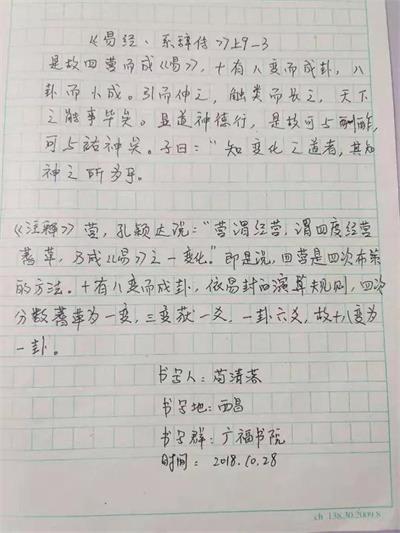 《易经、系辞传》上9-3
是故四营而成《易》，十有八变而成卦，八
卦而小成。引而伸之，触类而长之，天下
之能事毕矣。显道神德行，是故可与酬酢，
可与祐神矣。子曰：“知变化之道者，其知
神之所为乎。
《注释》营，孔颖达说：“营谓经营，谓四度经营
蓍草，乃成《易》之一变化。”即是说，四营是四次布策
的方法。十有八变而成卦，依易卦的演算规则，四次
分数蓍草为一变，三变获一爻，一卦六爻，故十八变为
一卦。
书写人：苟清蓉
书写地：西昌
书写群：广福书院
时间：2018.10.28
ch 138.30.2009.8